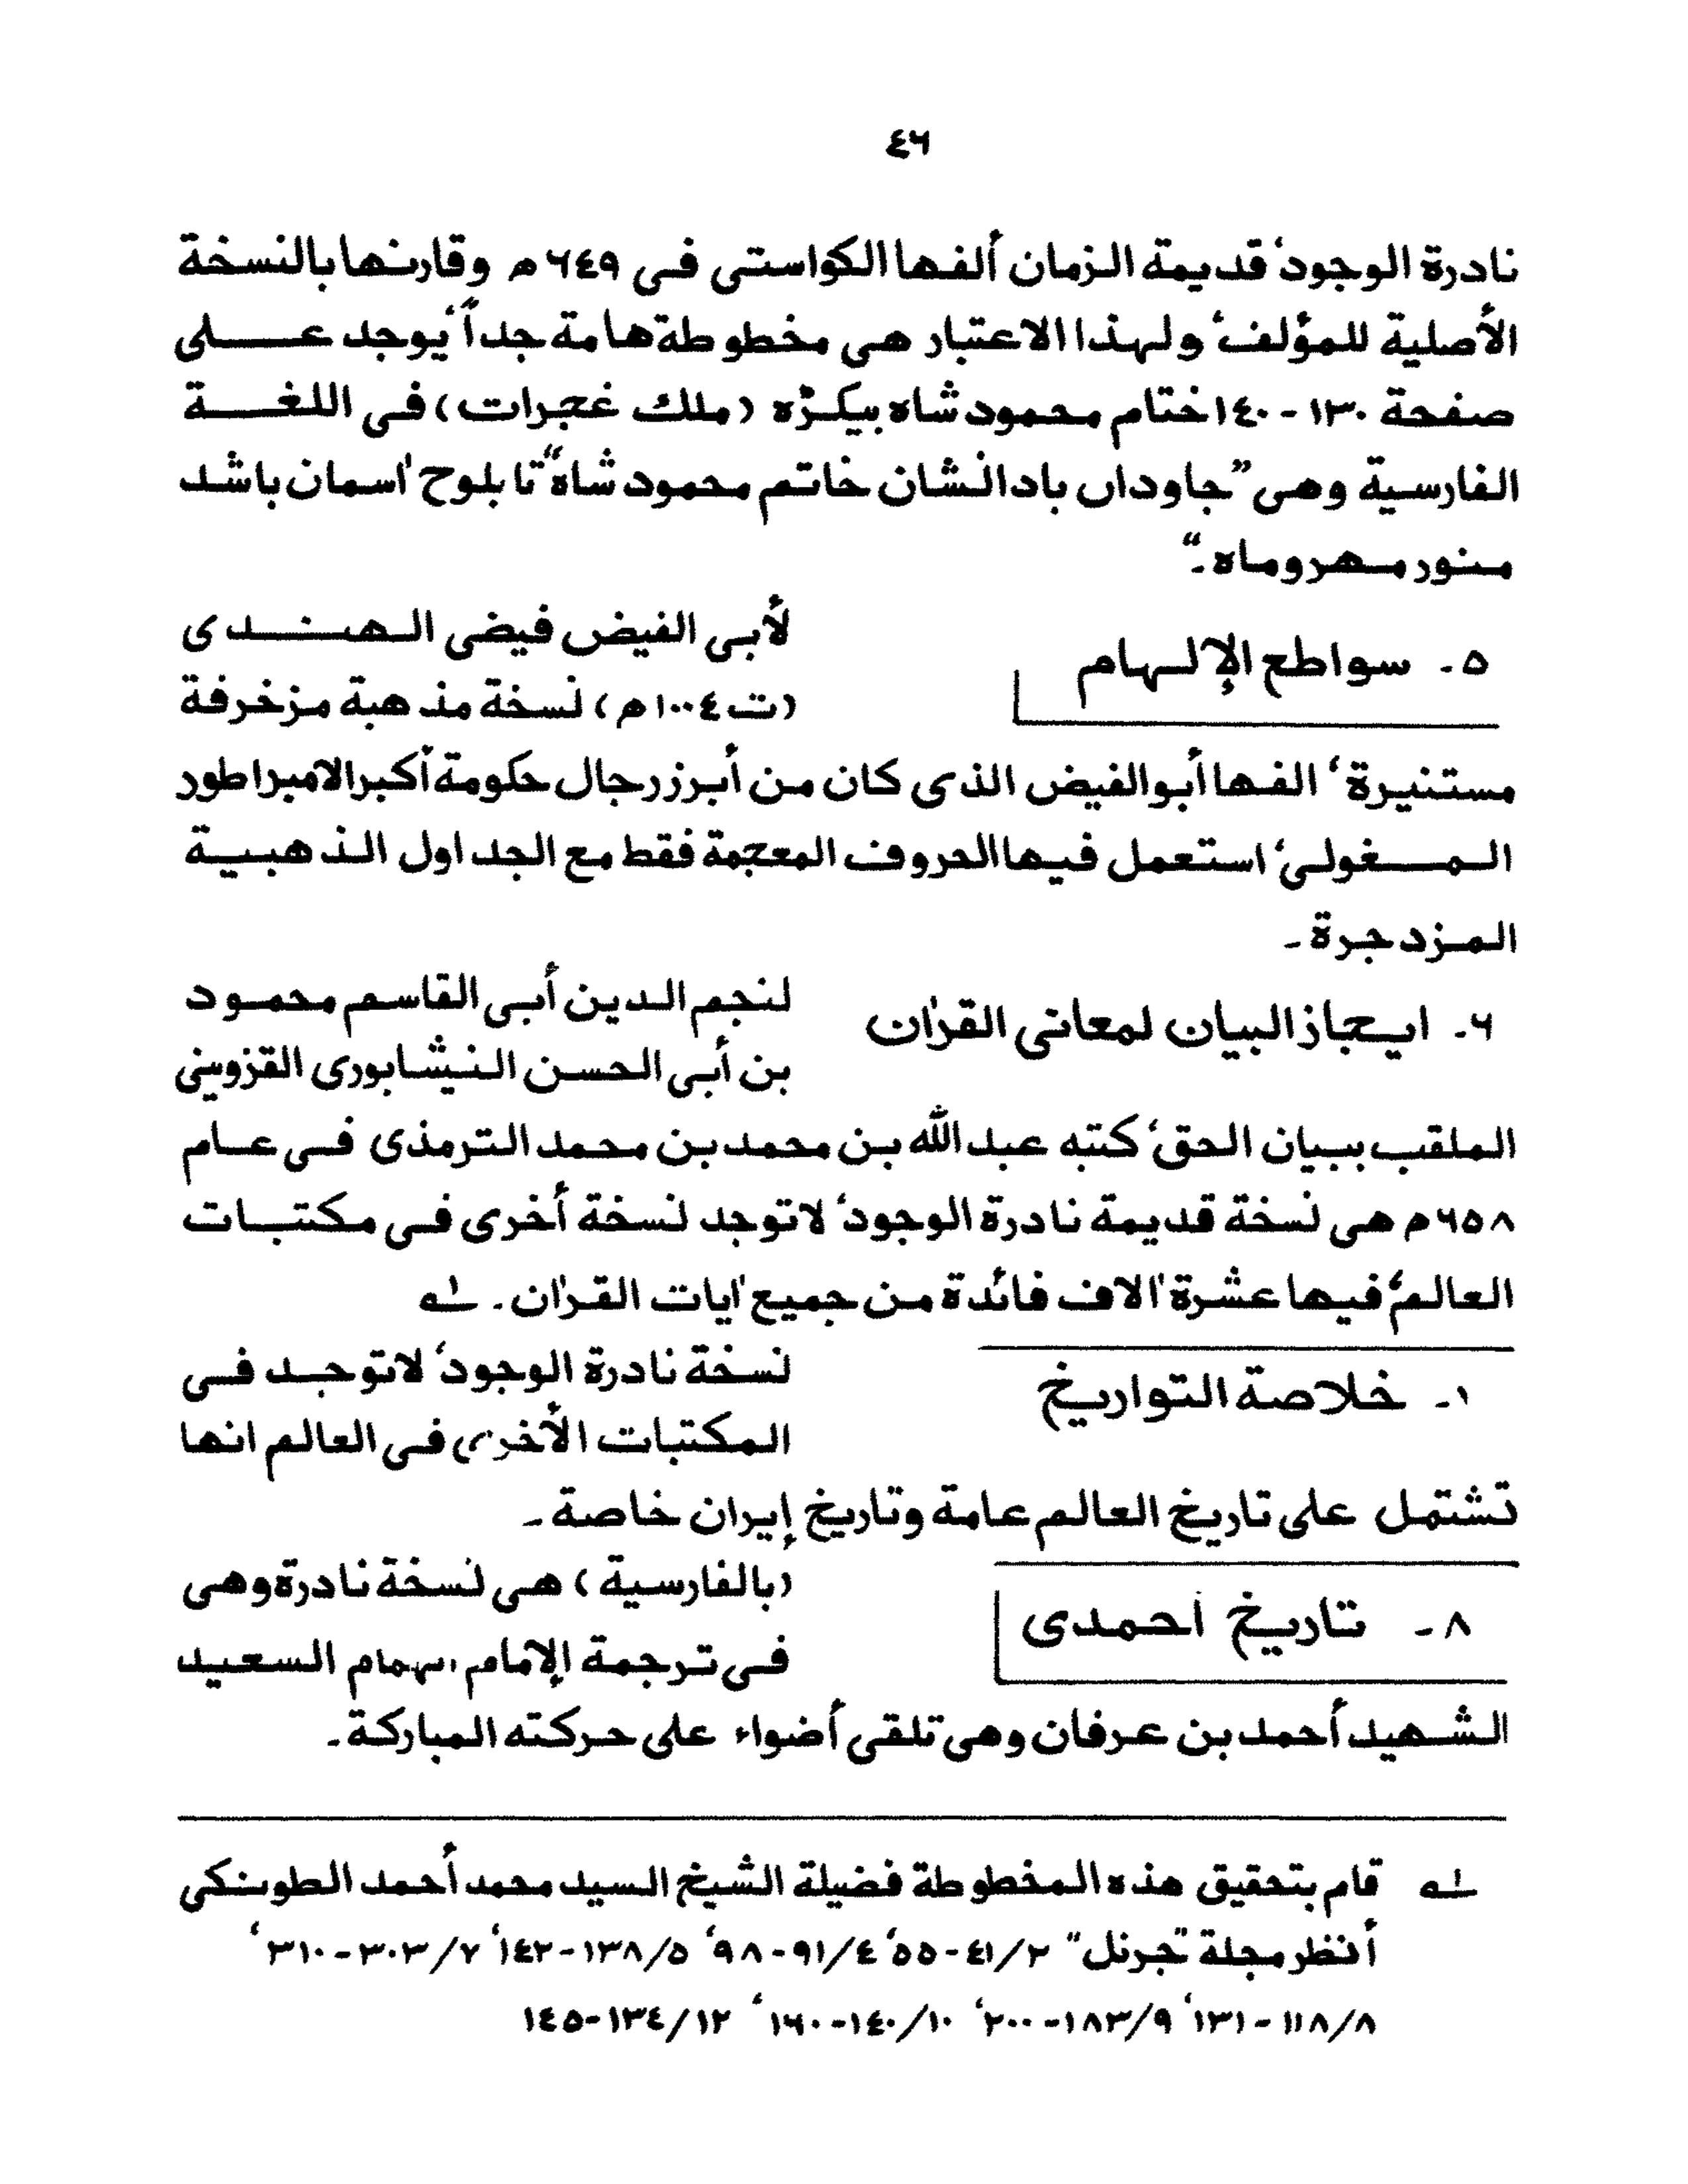 ٤٦
نادرة الوجود، قديمة الزمان ألفها الكواستى فى ٦٤٩ ه وقارنها بالنسخة
الأصلية للمؤلف، ولهذا الاعتبار هى مخطوطة هامة جداً، يوجد على
صفحة ١٣٠ - ١٤٠ ختام محمود شاه بيكرّه (ملك غجرات) فى اللغة
الفارسية وهى ”جاوداں باد انشان خاتم محمود شاه“ تا بلوح اسمان باشد
منور مهروماه۔“
٥۔ سواطع الإلهام
لأبى الفيض فيضى الهندى
(ت ١٠٠٤ ه) نسخة مذهبة مزخرفة
مستنيرة، الفها أبوالفيض الذى كان من أبرز رجال حكومة أكبر الامبراطور
المغولى، استعمل فيها الحروف المعجمة فقط مع الجداول الذهبية
المزدجرة۔
٦۔ ايجاز البيان لمعانى القرٰان
لنجم الدين أبى القاسم محمود
بن أبى الحسن النيشابورى القزوينى
الملقب ببيان الحق، كتبه عبد الله بن محمد بن محمد الترمذى فى عام
٦٥٨ ه هى نسخة قديمة نادرة الوجود، لاتوجد نسخة أخرى فى مكتبات
العالم، فيها عشرة اٰلاف فائدة من جميع اٰيات القرٰان۔ ١ـه
١۔ خلاصة التواريخ
نسخة نادرة الوجود، لاتوجد فى
المكتبات الأخرى فى العالم انها
تشتمل على تاريخ العالم عامة وتاريخ إيران خاصة۔
٨۔ تاريخ احمدى
(بالفارسية) هى نسخة نادرة وهى
فى ترجمة الإمام الهمام السعيد
الشهيد أحمد بن عرفان وهى تلقى أضواء على حركته المباركة۔
١ـه قام بتحقيق هذه المخطوطة فضيلة الشيخ السيد محمد أحمد الطونكى
أنظر مجلة ”جرنل“ ٣/٤١-٥٥، ٤/٩١-٩٨، ٥/١٣٨-١٤٢، ٧/٣٠٣-٣١٠،
٨/١١٨-١٣١، ٩/١٨٣-٢٠٠، ١٠/١٤٠-١٦٠، ١٢/١٣٤-١٤٥